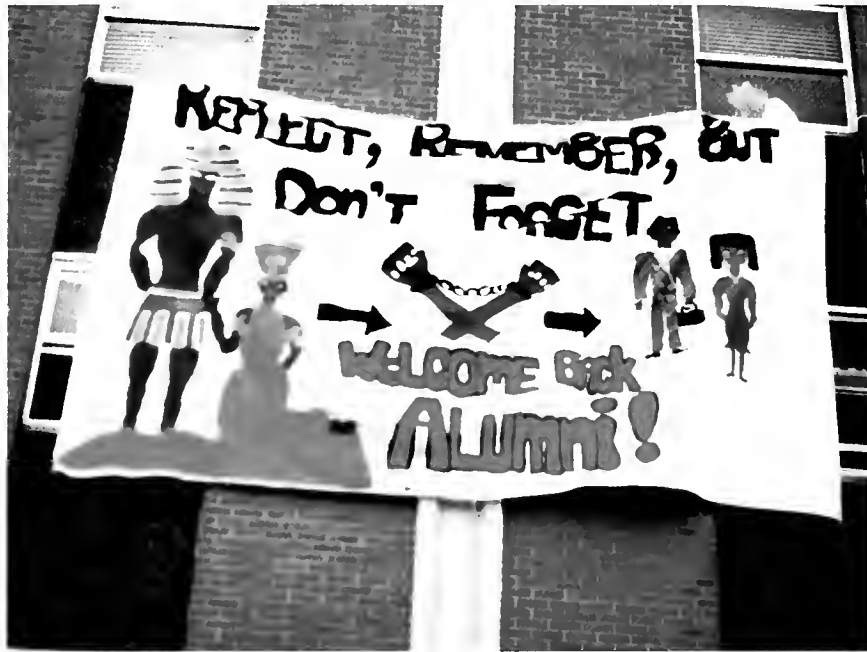 REFLECT, REMEMBER, BUT
DON'T FORGET.
WELCOME BACK
ALUMNI!